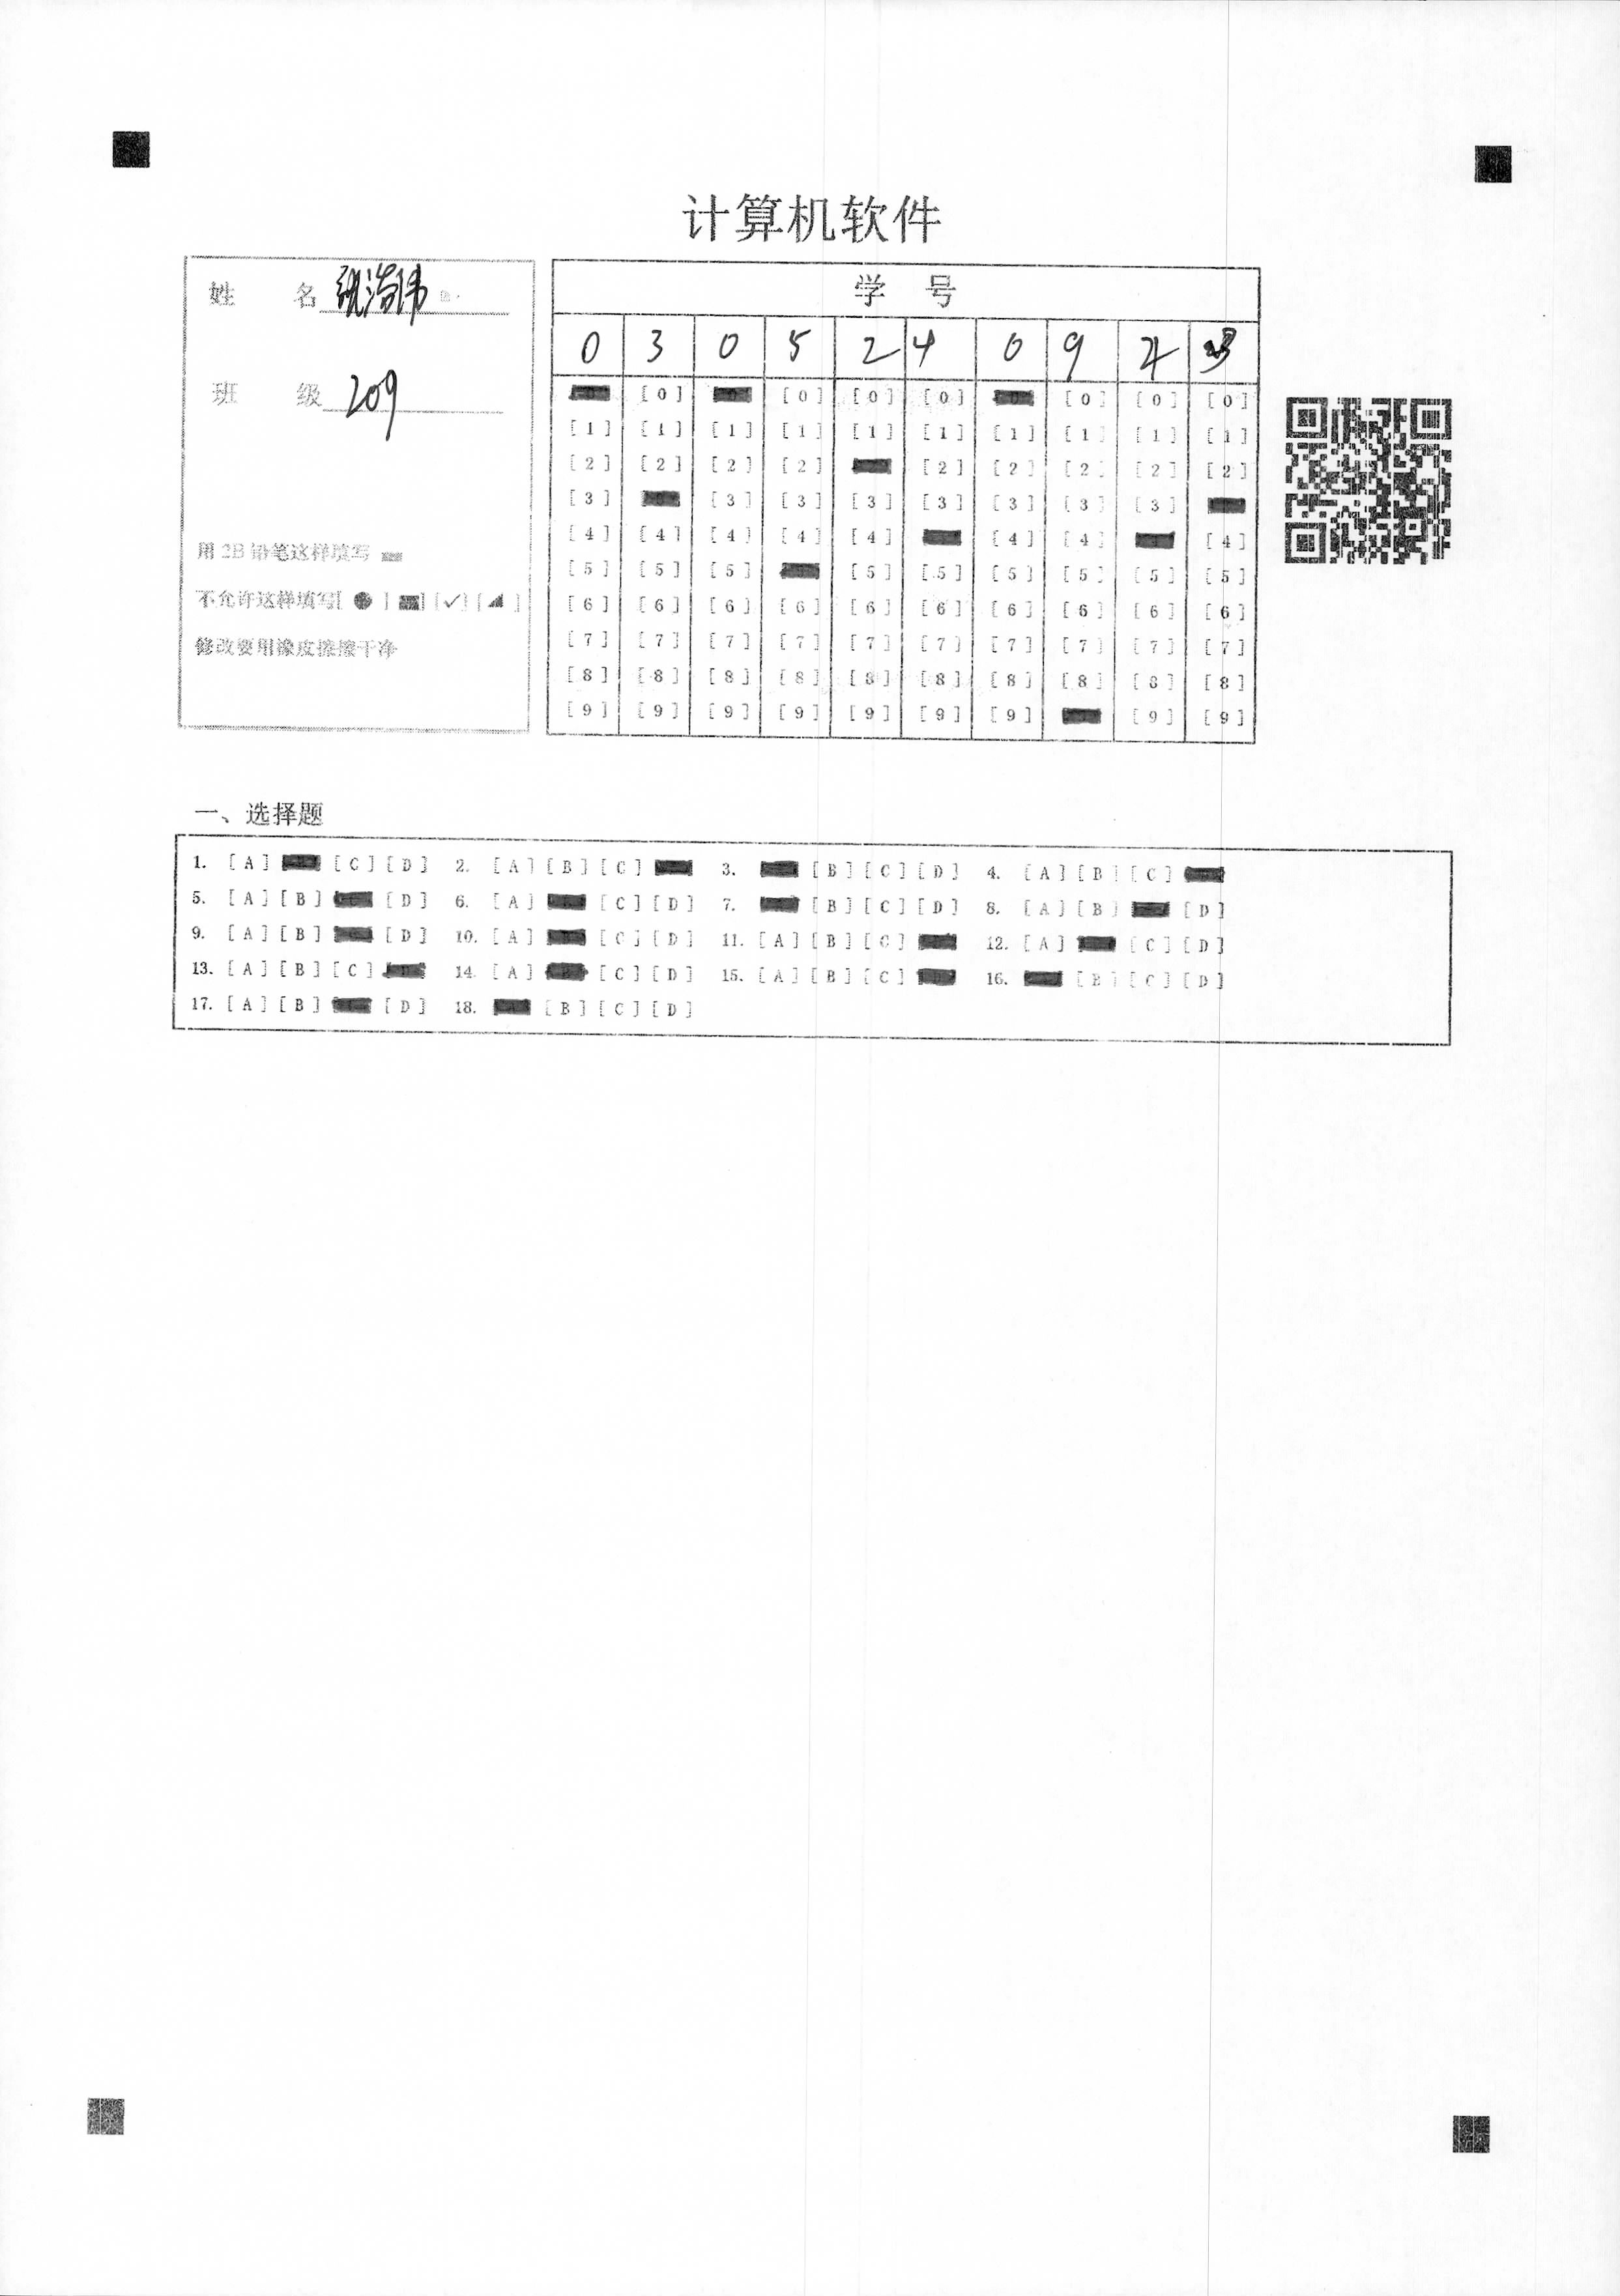 计算机软件
姓 名 张浩伟
班 级 209
用2B铅笔这样填写
不允许这样填写[ ● ] [ ] [✓] [ ]
修改要用橡皮擦擦干净
学 号
0 3 0 5 2 4 0 9 4 3
[0] [0] [0] [0] [0] [0] [0]
[1] [1] [1] [1] [1] [1] [1] [1] [1] [1]
[2] [2] [2] [2] [2] [2] [2] [2] [2]
[3] [3] [3] [3] [3] [3] [3] [3]
[4] [4] [4] [4] [4] [4] [4] [4]
[5] [5] [5] [5] [5] [5] [5] [5] [5]
[6] [6] [6] [6] [6] [6] [6] [6] [6] [6]
[7] [7] [7] [7] [7] [7] [7] [7] [7] [7]
[8] [8] [8] [8] [8] [8] [8] [8] [8] [8]
[9] [9] [9] [9] [9] [9] [9] [9] [9]
一、选择题
1. [A] [C] [D] 2. [A] [B] [C] 3. [B] [C] [D] 4. [A] [B] [C]
5. [A] [B] [D] 6. [A] [C] [D] 7. [B] [C] [D] 8. [A] [B] [D]
9. [A] [B] [D] 10. [A] [C] [D] 11. [A] [B] [C] 12. [A] [C] [D]
13. [A] [B] [C] 14. [A] [C] [D] 15. [A] [B] [C] 16. [B] [C] [D]
17. [A] [B] [D] 18. [B] [C] [D]